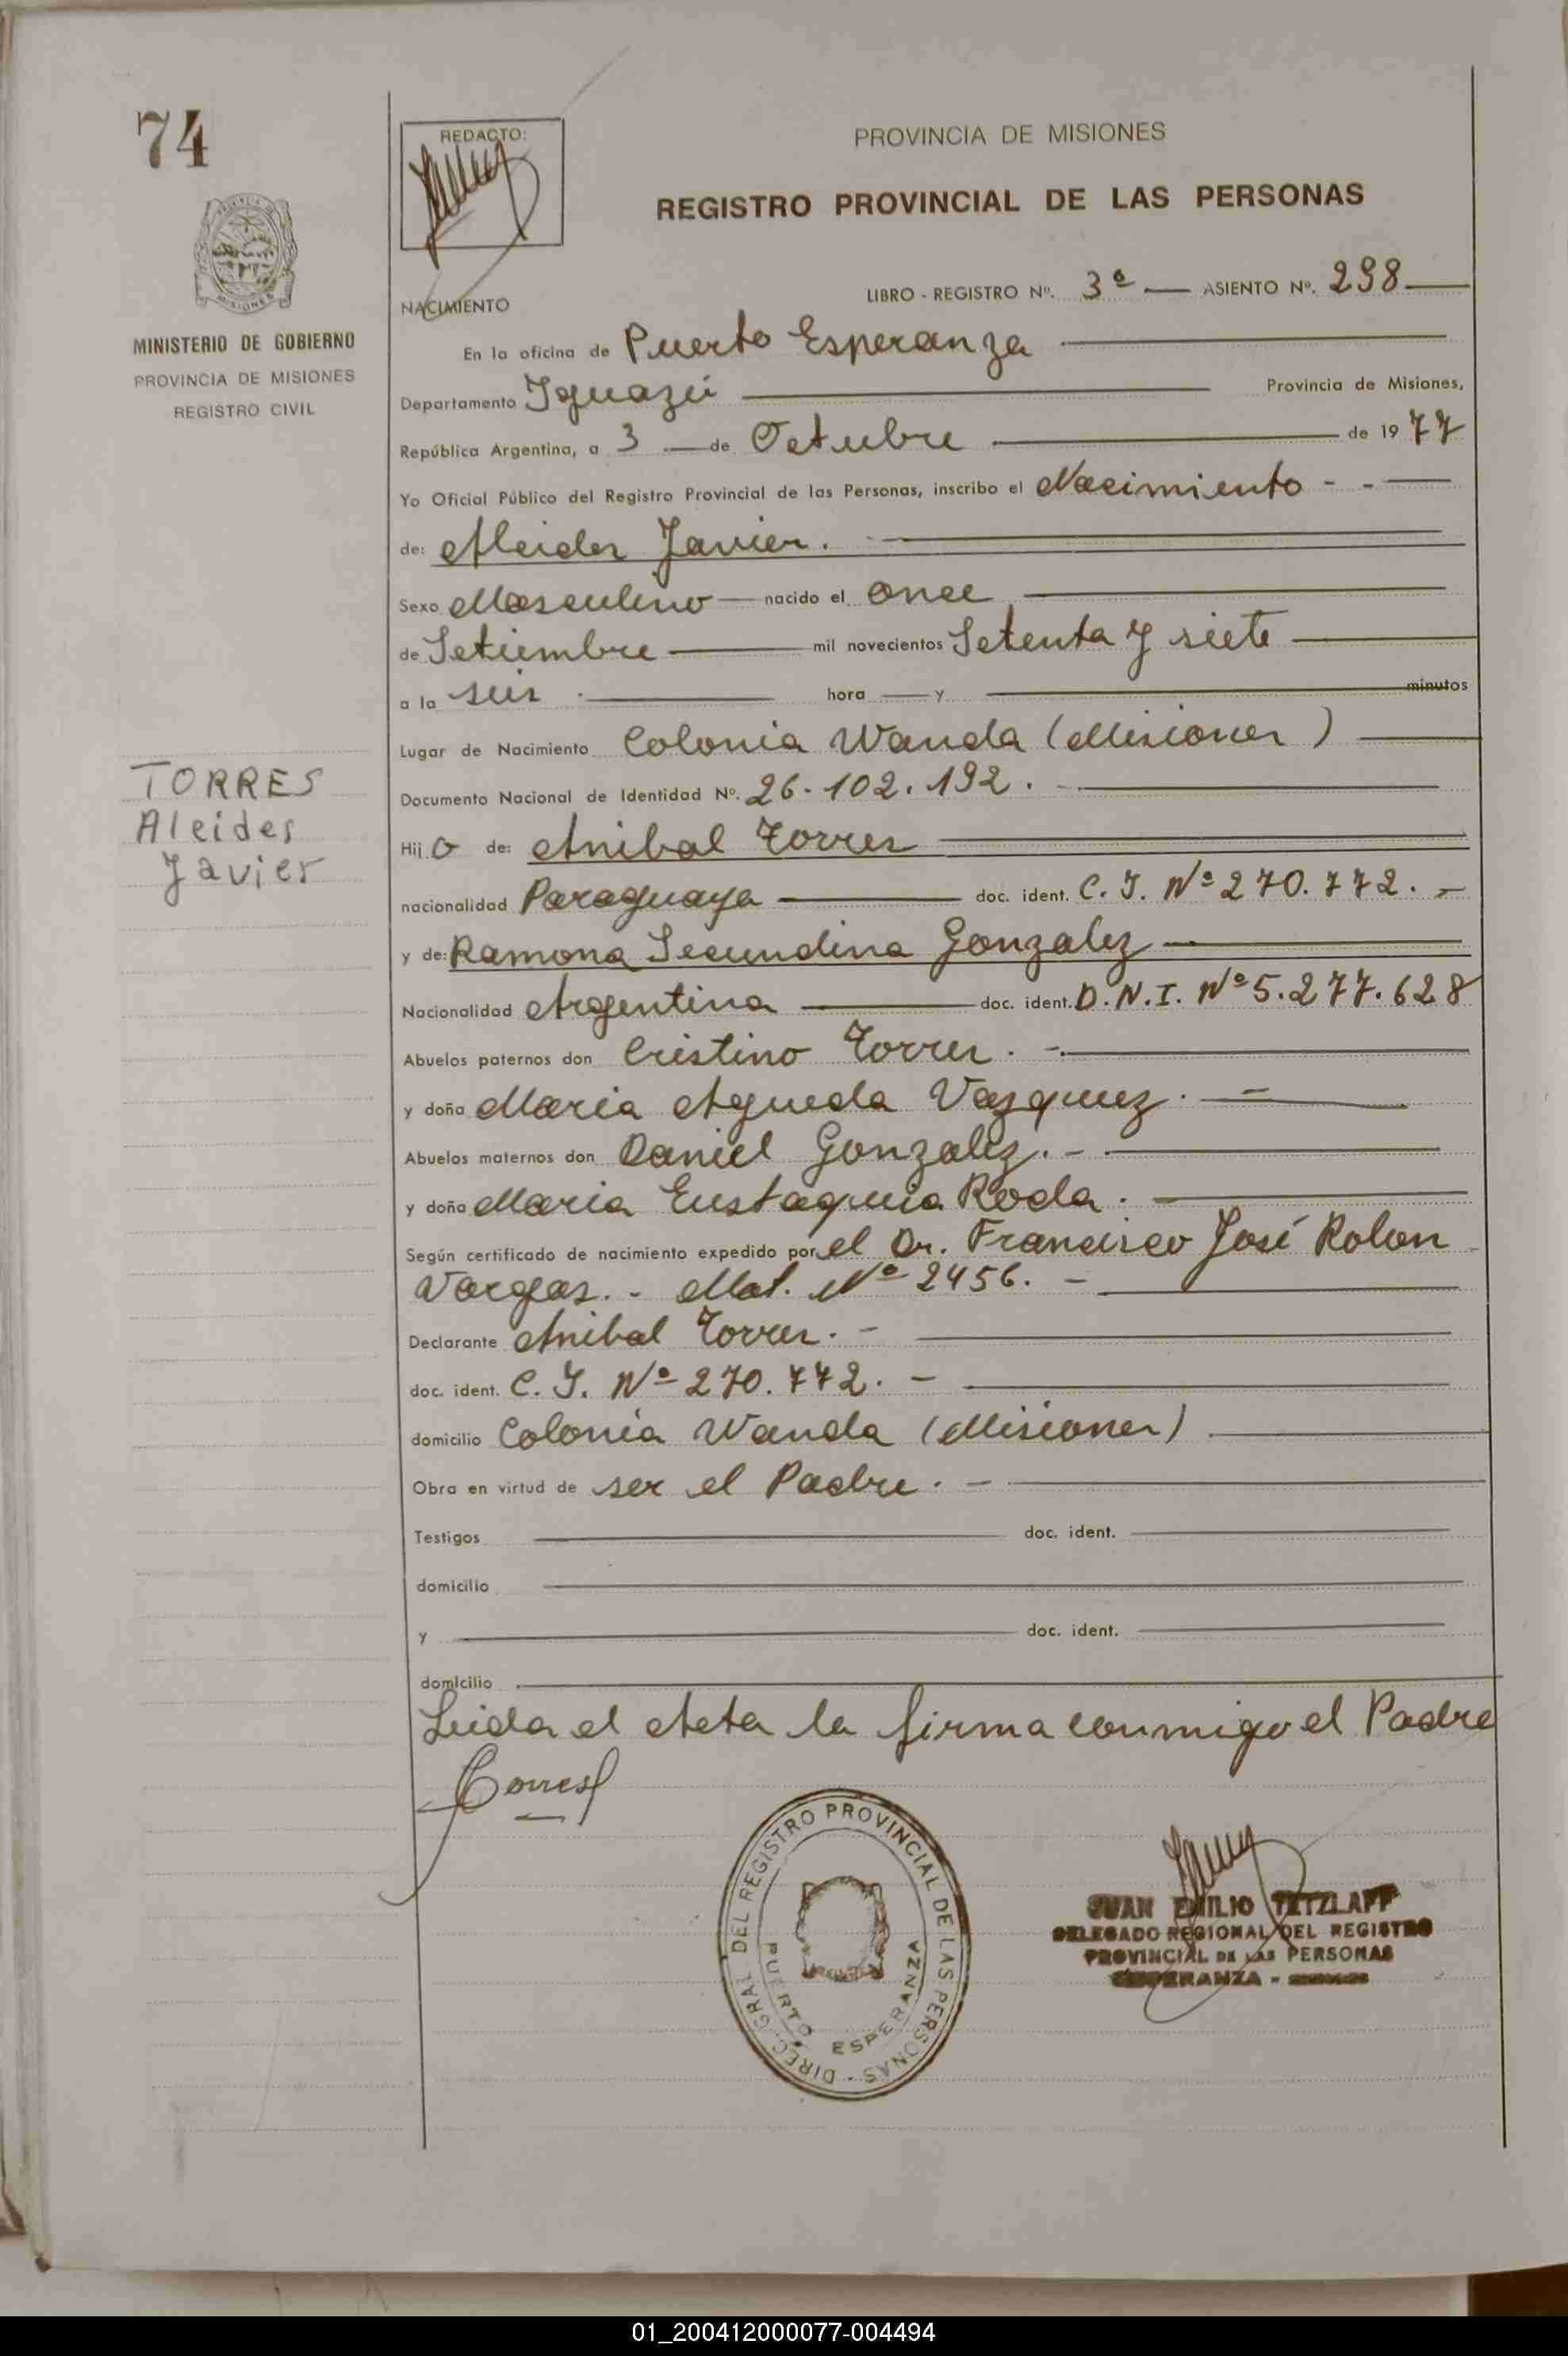 74
REDACTO:
PROVINCIA DE MISIONES
REGISTRO PROVINCIAL DE LAS PERSONAS
MINISTERIO DE GOBIERNO
PROVINCIA DE MISIONES
REGISTRO CIVIL
NACIMIENTO
LIBRO - REGISTRO Nº. 3º — ASIENTO Nº. 298
En la oficina de Puerto Esperanza
Departamento Iguazú Provincia de Misiones,
República Argentina, a 3 de Octubre de 1977
Yo Oficial Público del Registro Provincial de las Personas, inscribo el Nacimiento - -
de: Aleides Javier.
Sexo Masculino nacido el once
de Setiembre mil novecientos Setenta y siete
a la seis hora y minutos
Lugar de Nacimiento Colonia Wanda (Misiones)
Documento Nacional de Identidad Nº. 26.102.192.
TORRES
Aleides
Javier
Hijo de: Anibal Torres
nacionalidad Paraguaya doc. ident. C. I. Nº 270.772. -
y de: Ramona Secundina Gonzalez
Nacionalidad Argentina doc. ident. D.N.I. Nº 5.277.628
Abuelos paternos don Cristino Torres. -
y doña Maria Agueda Vazquez. -
Abuelos maternos don Daniel Gonzalez. -
y doña Maria Eustaquia Roda.
Según certificado de nacimiento expedido por el Dr. Francisco José Rolon
Vargas. - Mat. Nº 2456. -
Declarante Anibal Torres. -
doc. ident. C. I. Nº 270.772. -
domicilio Colonia Wanda (Misiones)
Obra en virtud de ser el Padre. -
Testigos doc. ident.
domicilio
y doc. ident.
domicilio
Leida el Acta la firma conmigo el Padre
Torres
DIREC. GRAL. DEL REGISTRO PROVINCIAL DE LAS PERSONAS -
PUERTO ESPERANZA
JUAN EMILIO TETZLAFF
DELEGADO REGIONAL DEL REGISTRO
PROVINCIAL DE LAS PERSONAS
ESPERANZA -
01_200412000077-004494